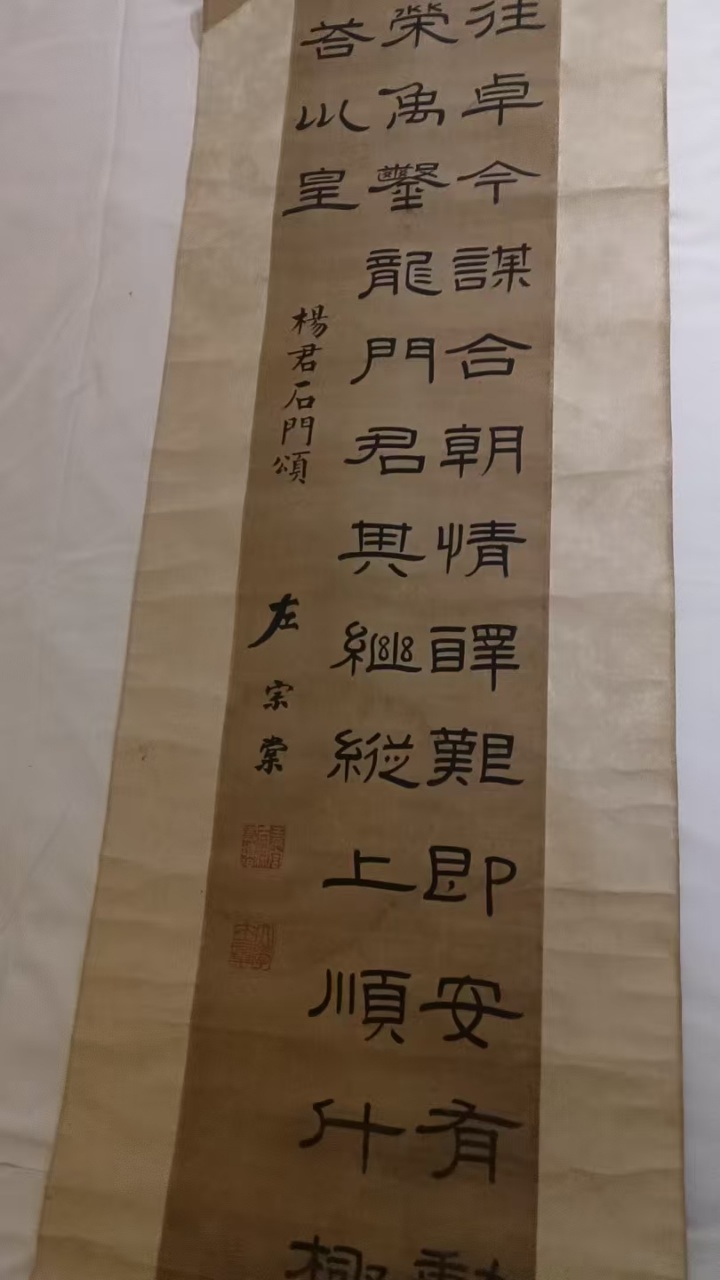 往卓今謀合朝情醳艱即安有勳
榮禹鑿龍門君其繼縱上順斗極
荅巛皇
楊君石門頌
左宗棠